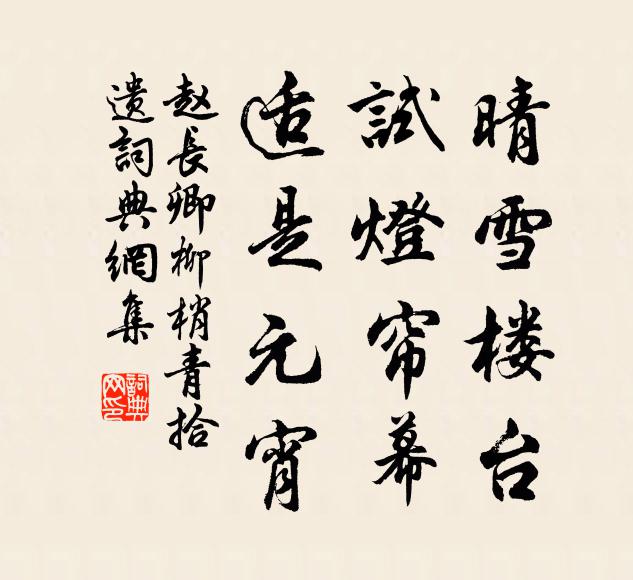 晴雪楼台
試燈帘幕
适是元宵
赵長卿柳梢青拾
遗詞典網集
詞典网印